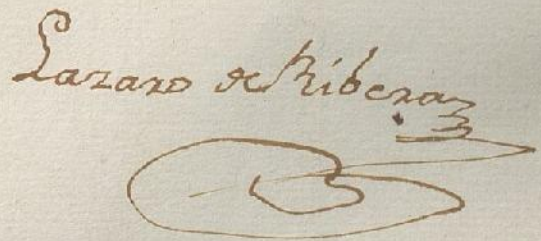 Lazaro de Ribera